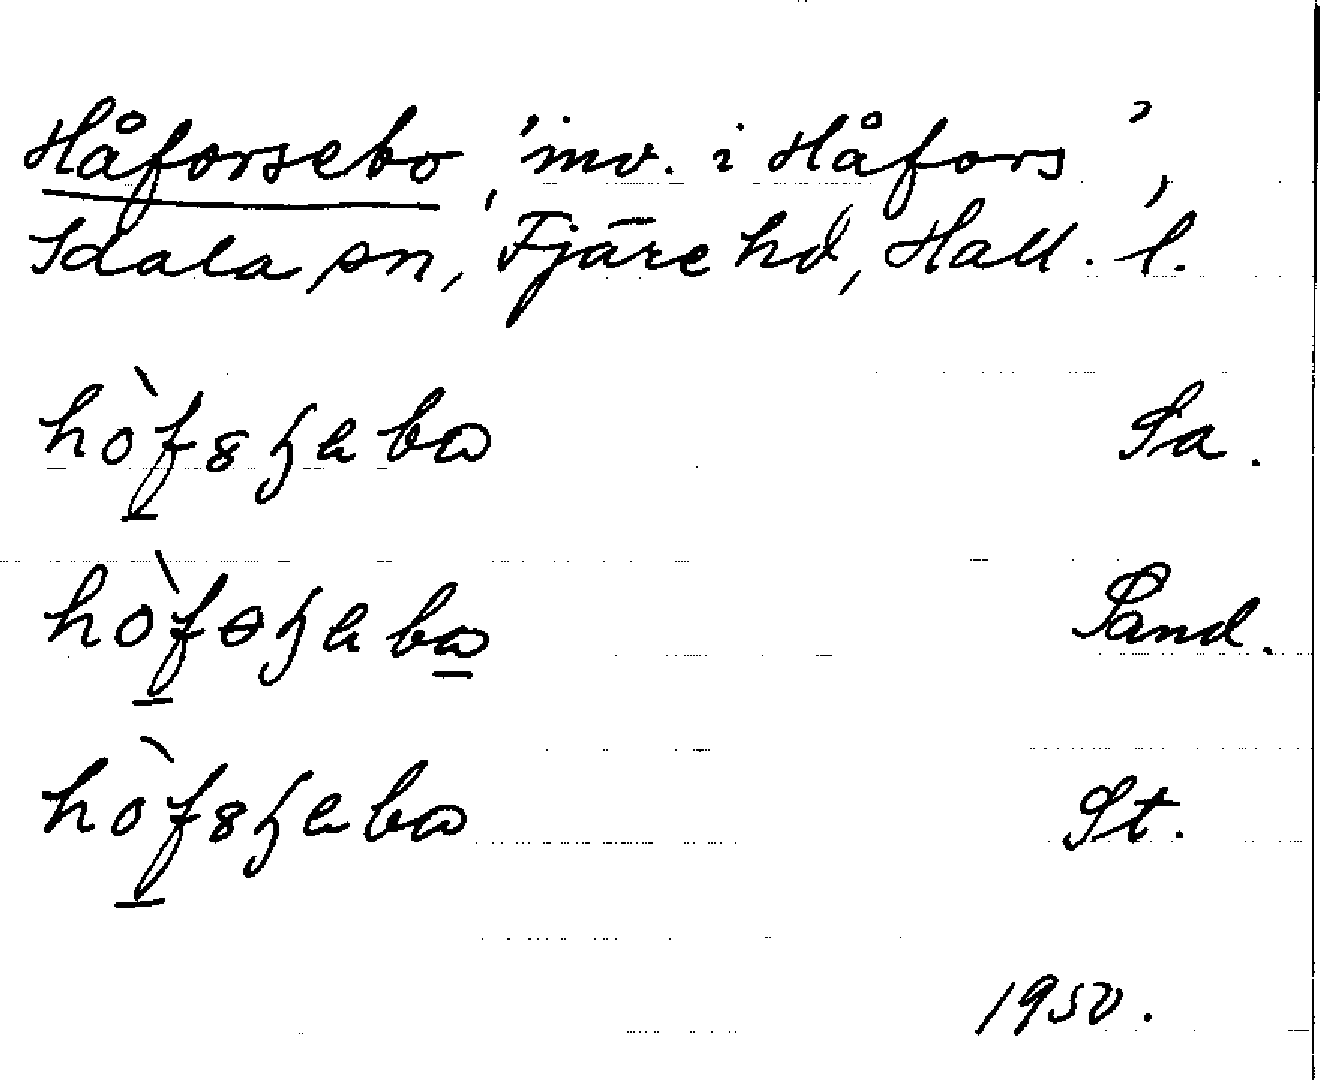 Håforsebo, 'inv. i Håfors',
Idala sn, Fjäre hd, Hall. l.
Sa.
Sand.
St.
1950.